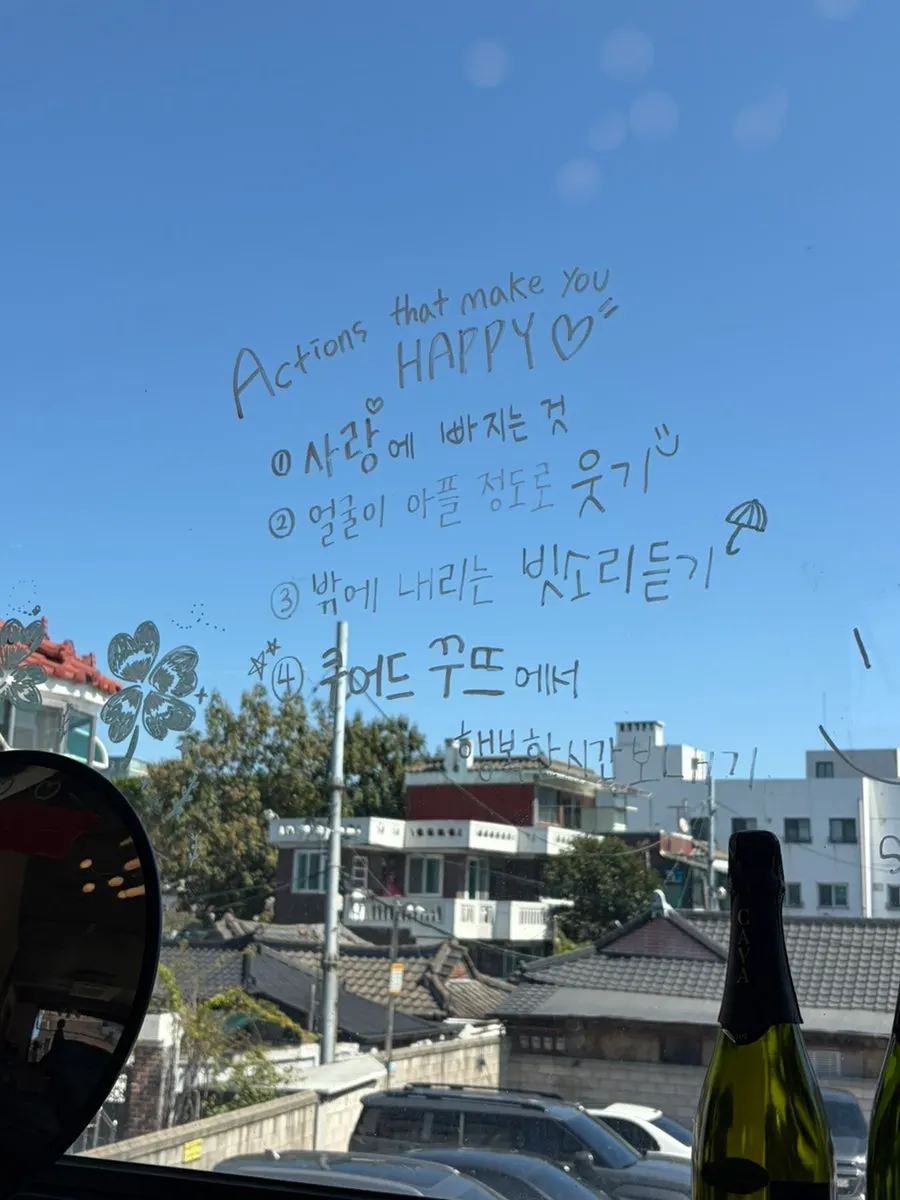 Actions that make you
HAPPY
① 사랑에 빠지는 것
② 얼굴이 아플 정도로 웃기
③ 밖에 내리는 빗소리듣기
④ 쿠어드 꾸뜨에서
행복한 시간 보내기
CAVA